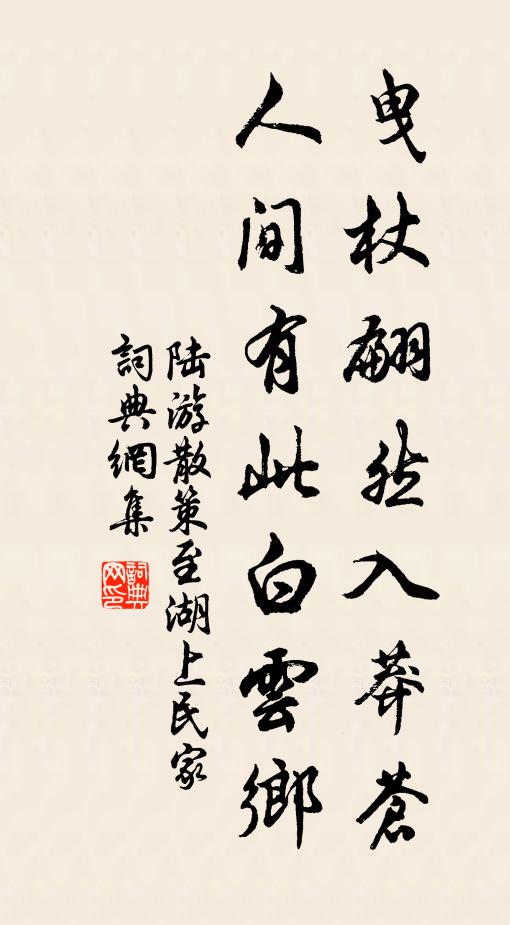 曳杖翩然入莽蒼
人间有此白雲鄉
陆游散策至湖上民家
詞典網集
詞典网印